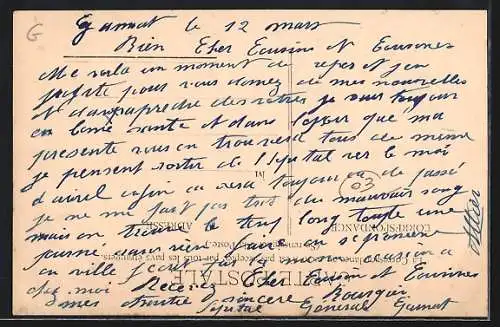 G
Gannat le 12 mars
Bien Cher Cousin et Cousines
Me voila un moment de repos et j'en
profite pour vous donnez de mes nouvelles
et d'aprendre des votres je suis toujour
en bonne santé et dans l'espoir que ma
présente vous en trouvera tous de même
je pensent sortir de l'hopital vers le moi
d'avril enfin sa sera toujour de passé
je ne me fait pas trop de mauvais sang
mais on trouve le temp long toute une
journé sans rien faire
en ville
chez moi Recevez Cher Cousin et Cousines
mes amitié sincère
Hopital Général Gannat
03
Allier
CARTE POSTALE
CORRESPONDANCE
ADRESSE